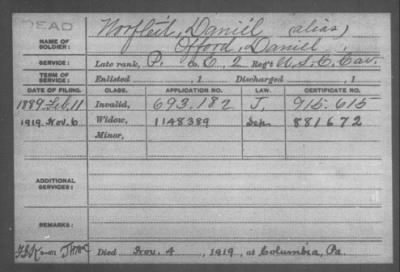 DEAD
Norfleit, Daniel (alias)
NAME OF SOLDIER: Offord, Daniel
SERVICE: Late rank, P. Co. C, 2 Reg't U.S.C. Cav.
TERM OF SERVICE: Enlisted , 1 Discharged , 1
DATE OF FILING. CLASS. APPLICATION NO. LAW. CERTIFICATE NO.
1889 Feb. 11 Invalid, 693.182 J. 915.615
1919 Nov. 6 Widow, 1148389 881672
Minor,
ADDITIONAL SERVICES:
REMARKS:
Died Nov. 4, 1919, at Columbia, Pa.